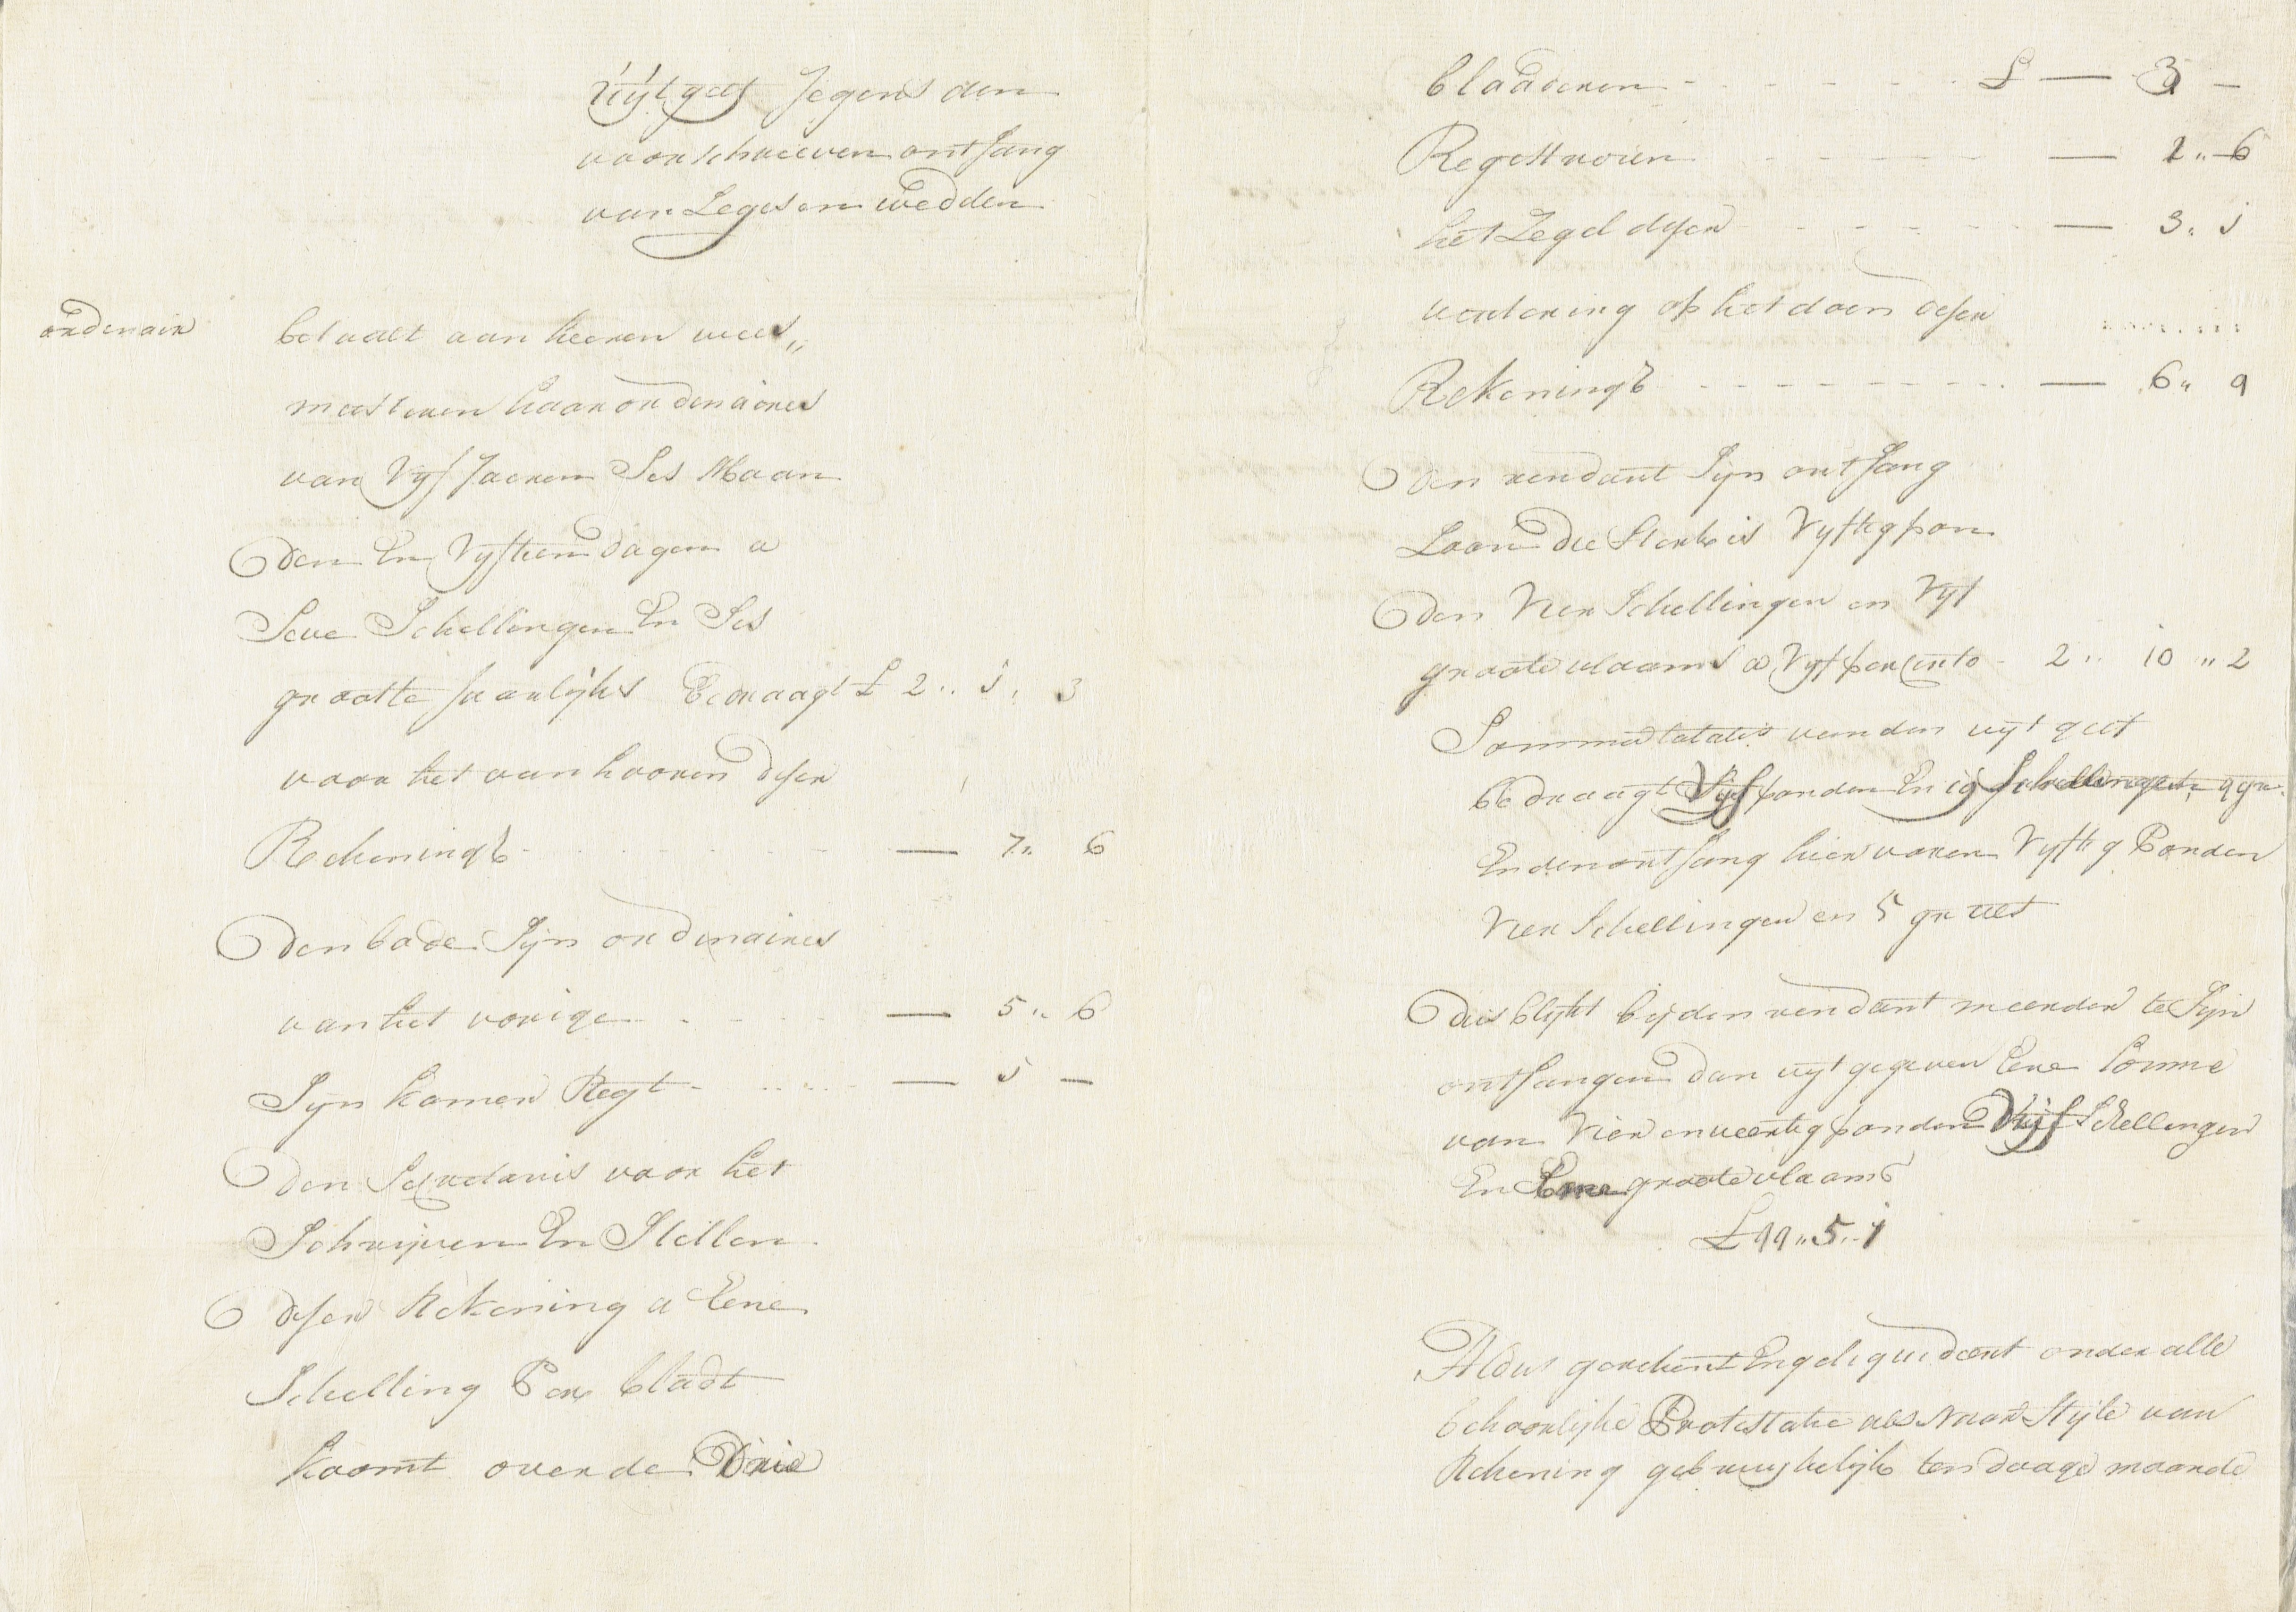 Uijtgeef Jegens den
voorschreeven ontfang
van Leges en wedden
ordenair
betaalt aan heeren wees„
meesteren haar ordenaires
van Vijf Jaeren Ses Maan
den En Vijftien dagen a
Seve Schellingen En Ses
grootte Jaarlijks Bedraagt £ 2 „ j „ 3
voor het aanhooren deser
Rekeningh - — 7 „ 6
den bode Sijn ordenaires
van het vorige - — 5 „ 6
Sijn kamer Regt - — 5 —
den Secretaris voor het
Schrijven En Stellen
deser Rekening a Eene
Schelling Per bladt
koomt over de Drie
bladeren - £ — 3 —
Regestreren - — 2 „ 6
het Zegel deser - — 3 „ j
verteering op het doen deser
Rekeningh - — 6 „ 9
den rendant Sijn ontfang
Loon die Sterk is Vijftig pon
den Vier Schellingen en Vijf
groote vlaams a Vijf per Cento - 2 „ 10 „ 2
Somma totalis van den uijtgeef
bedraagt Vijf ponden En 19 schellingen, 4 gr.
En den ontfang hier voren Vijftig Ponden
Vier Schellingen en 5 gr vls
dus blijkt bij den rendant meerder te Sijn
ontfangen dan uijtgegeven Eene Somme
van Vier en veertig ponden Vijf Schellingen
En Eene groote vlaams
£ 44 „ 5 „ j
Aldus gerekent En geliquideert onder alle
behoorlijke Protestatie als naar Stijle van
Rekening gebruijkelijk ten daage maande